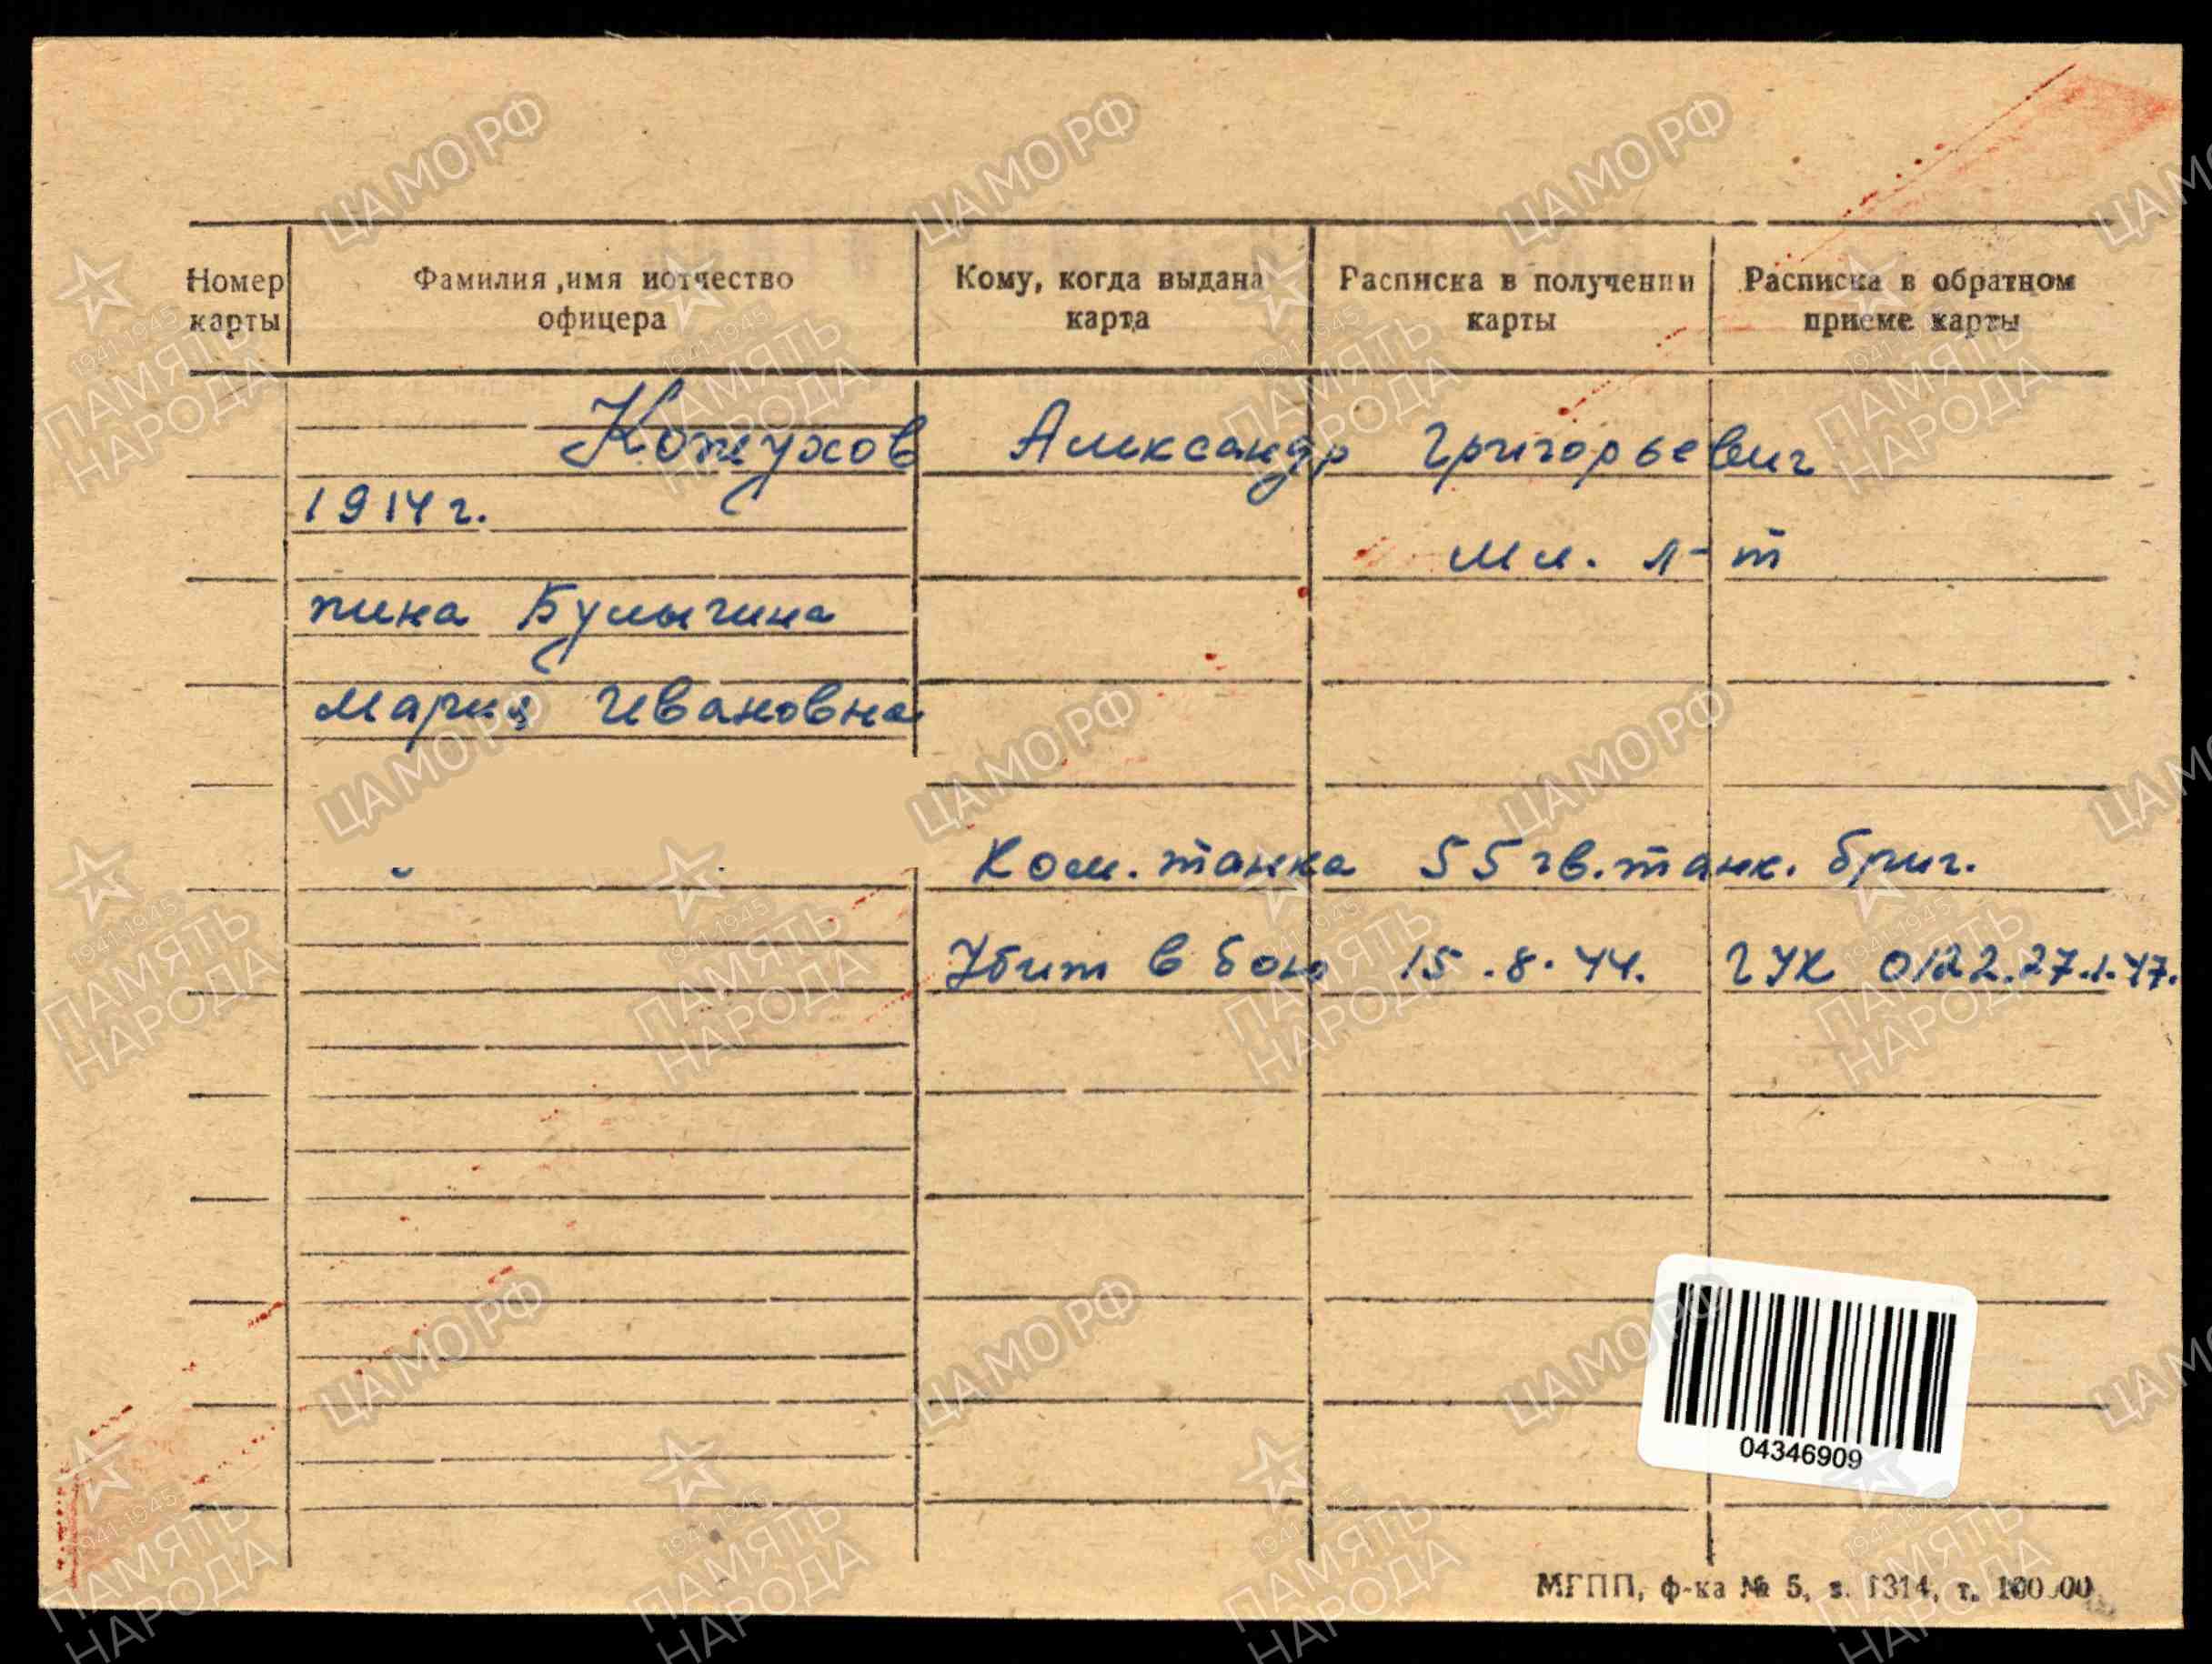 Номер карты
Фамилия, имя и отчество офицера
Кому, когда выдана карта
Расписка в получении карты
Расписка в обратном приеме карты
Кожухов Александр Григорьевич
1914 г.
мл. л-т
жена Булыгина
Мария Ивановна
Ком. танка 55 гв. танк. бриг.
Убит в бою 15.8.44. ГУК 0122.27.1.47.
04346909
МГПП, ф-ка № 5, з. 1314, т.
ЦАМО.РФ
1941-1945
ПАМЯТЬ
НАРОДА